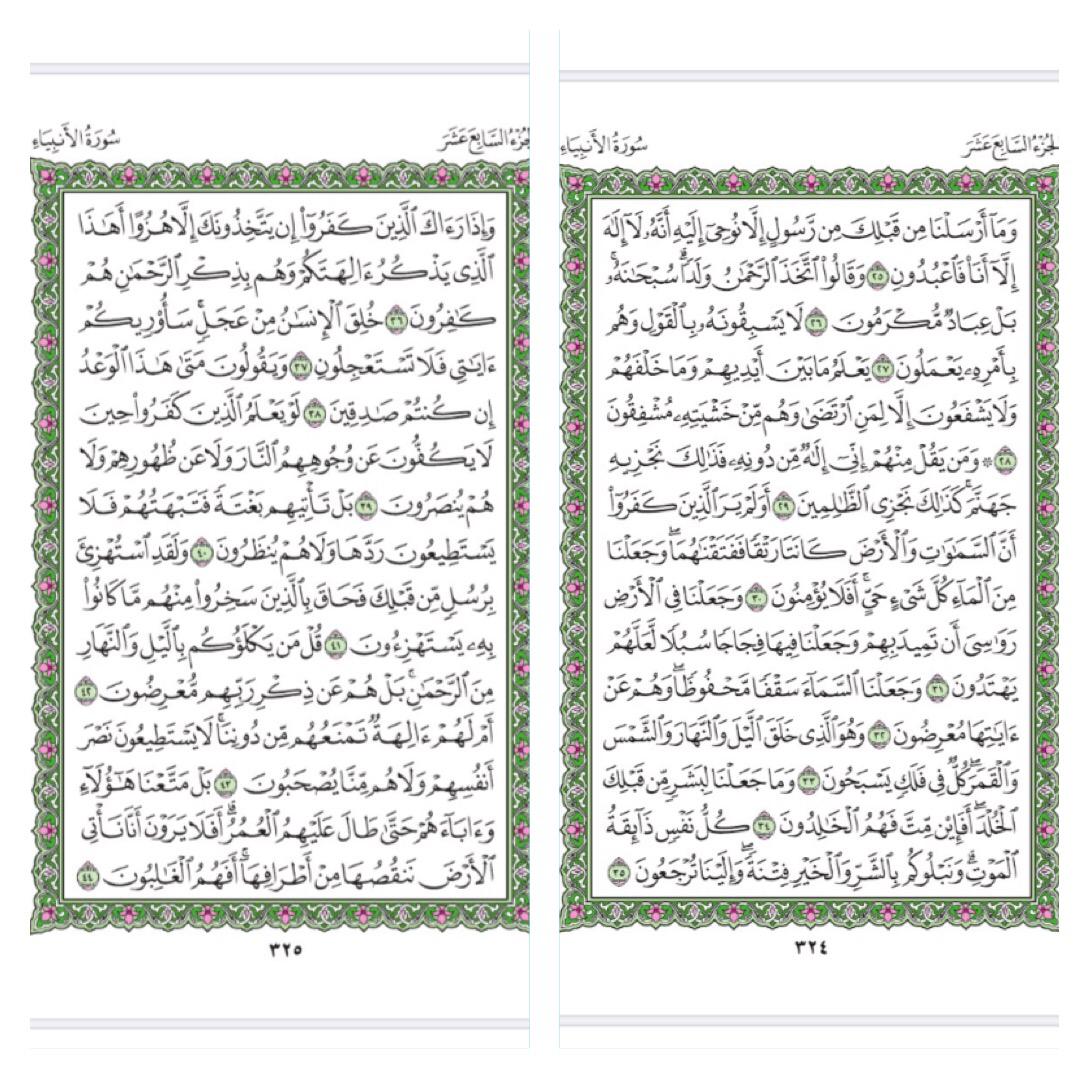 الجزء السابع عشر
سورة الأنبياء
وَمَآ أَرۡسَلۡنَا مِن قَبۡلِكَ مِن رَّسُولٍ إِلَّا نُوحِيٓ إِلَيۡهِ أَنَّهُۥ لَآ إِلَٰهَ
إِلَّآ أَنَا۠ فَٱعۡبُدُونِ ٢٥ وَقَالُواْ ٱتَّخَذَ ٱلرَّحۡمَٰنُ وَلَدٗاۗ سُبۡحَٰنَهُۥۚ
بَلۡ عِبَادٞ مُّكۡرَمُونَ ٢٦ لَا يَسۡبِقُونَهُۥ بِٱلۡقَوۡلِ وَهُم
بِأَمۡرِهِۦ يَعۡمَلُونَ ٢٧ يَعۡلَمُ مَا بَيۡنَ أَيۡدِيهِمۡ وَمَا خَلۡفَهُمۡ
وَلَا يَشۡفَعُونَ إِلَّا لِمَنِ ٱرۡتَضَىٰ وَهُم مِّنۡ خَشۡيَتِهِۦ مُشۡفِقُونَ
٢٨ ۞ وَمَن يَقُلۡ مِنۡهُمۡ إِنِّيٓ إِلَٰهٞ مِّن دُونِهِۦ فَذَٰلِكَ نَجۡزِيهِ
جَهَنَّمَۚ كَذَٰلِكَ نَجۡزِي ٱلظَّٰلِمِينَ ٢٩ أَوَلَمۡ يَرَ ٱلَّذِينَ كَفَرُوٓاْ
أَنَّ ٱلسَّمَٰوَٰتِ وَٱلۡأَرۡضَ كَانَتَا رَتۡقٗا فَفَتَقۡنَٰهُمَاۖ وَجَعَلۡنَا
مِنَ ٱلۡمَآءِ كُلَّ شَيۡءٍ حَيٍّۚ أَفَلَا يُؤۡمِنُونَ ٣٠ وَجَعَلۡنَا فِي ٱلۡأَرۡضِ
رَوَٰسِيَ أَن تَمِيدَ بِهِمۡ وَجَعَلۡنَا فِيهَا فِجَاجٗا سُبُلٗا لَّعَلَّهُمۡ
يَهۡتَدُونَ ٣١ وَجَعَلۡنَا ٱلسَّمَآءَ سَقۡفٗا مَّحۡفُوظٗاۖ وَهُمۡ عَنۡ
ءَايَٰتِهَا مُعۡرِضُونَ ٣٢ وَهُوَ ٱلَّذِي خَلَقَ ٱلَّيۡلَ وَٱلنَّهَارَ وَٱلشَّمۡسَ
وَٱلۡقَمَرَۖ كُلّٞ فِي فَلَكٖ يَسۡبَحُونَ ٣٣ وَمَا جَعَلۡنَا لِبَشَرٖ مِّن قَبۡلِكَ
ٱلۡخُلۡدَۖ أَفَإِيْن مِّتَّ فَهُمُ ٱلۡخَٰلِدُونَ ٣٤ كُلُّ نَفۡسٖ ذَآئِقَةُ
ٱلۡمَوۡتِۗ وَنَبۡلُوكُم بِٱلشَّرِّ وَٱلۡخَيۡرِ فِتۡنَةٗۖ وَإِلَيۡنَا تُرۡجَعُونَ ٣٥
٣٢٤
الجزء السابع عشر
سورة الأنبياء
وَإِذَا رَءَاكَ ٱلَّذِينَ كَفَرُوٓاْ إِن يَتَّخِذُونَكَ إِلَّا هُزُوًا أَهَٰذَا
ٱلَّذِي يَذۡكُرُ ءَالِهَتَكُمۡ وَهُم بِذِكۡرِ ٱلرَّحۡمَٰنِ هُمۡ
كَٰفِرُونَ ٣٦ خُلِقَ ٱلۡإِنسَٰنُ مِنۡ عَجَلٖۚ سَأُوْرِيكُمۡ
ءَايَٰتِي فَلَا تَسۡتَعۡجِلُونِ ٣٧ وَيَقُولُونَ مَتَىٰ هَٰذَا ٱلۡوَعۡدُ
إِن كُنتُمۡ صَٰدِقِينَ ٣٨ لَوۡ يَعۡلَمُ ٱلَّذِينَ كَفَرُواْ حِينَ
لَا يَكُفُّونَ عَن وُجُوهِهِمُ ٱلنَّارَ وَلَا عَن ظُهُورِهِمۡ وَلَا
هُمۡ يُنصَرُونَ ٣٩ بَلۡ تَأۡتِيهِم بَغۡتَةٗ فَتَبۡهَتُهُمۡ فَلَا
يَسۡتَطِيعُونَ رَدَّهَا وَلَا هُمۡ يُنظَرُونَ ٤٠ وَلَقَدِ ٱسۡتُهۡزِئَ
بِرُسُلٖ مِّن قَبۡلِكَ فَحَاقَ بِٱلَّذِينَ سَخِرُواْ مِنۡهُم مَّا كَانُواْ
بِهِۦ يَسۡتَهۡزِءُونَ ٤١ قُلۡ مَن يَكۡلَؤُكُم بِٱلَّيۡلِ وَٱلنَّهَارِ
مِنَ ٱلرَّحۡمَٰنِۚ بَلۡ هُمۡ عَن ذِكۡرِ رَبِّهِم مُّعۡرِضُونَ ٤٢
أَمۡ لَهُمۡ ءَالِهَةٞ تَمۡنَعُهُم مِّن دُونِنَاۚ لَا يَسۡتَطِيعُونَ نَصۡرَ
أَنفُسِهِمۡ وَلَا هُم مِّنَّا يُصۡحَبُونَ ٤٣ بَلۡ مَتَّعۡنَا هَٰٓؤُلَآءِ
وَءَابَآءَهُمۡ حَتَّىٰ طَالَ عَلَيۡهِمُ ٱلۡعُمُرُۗ أَفَلَا يَرَوۡنَ أَنَّا نَأۡتِي
ٱلۡأَرۡضَ نَنقُصُهَا مِنۡ أَطۡرَافِهَآۚ أَفَهُمُ ٱلۡغَٰلِبُونَ ٤٤
٣٢٥